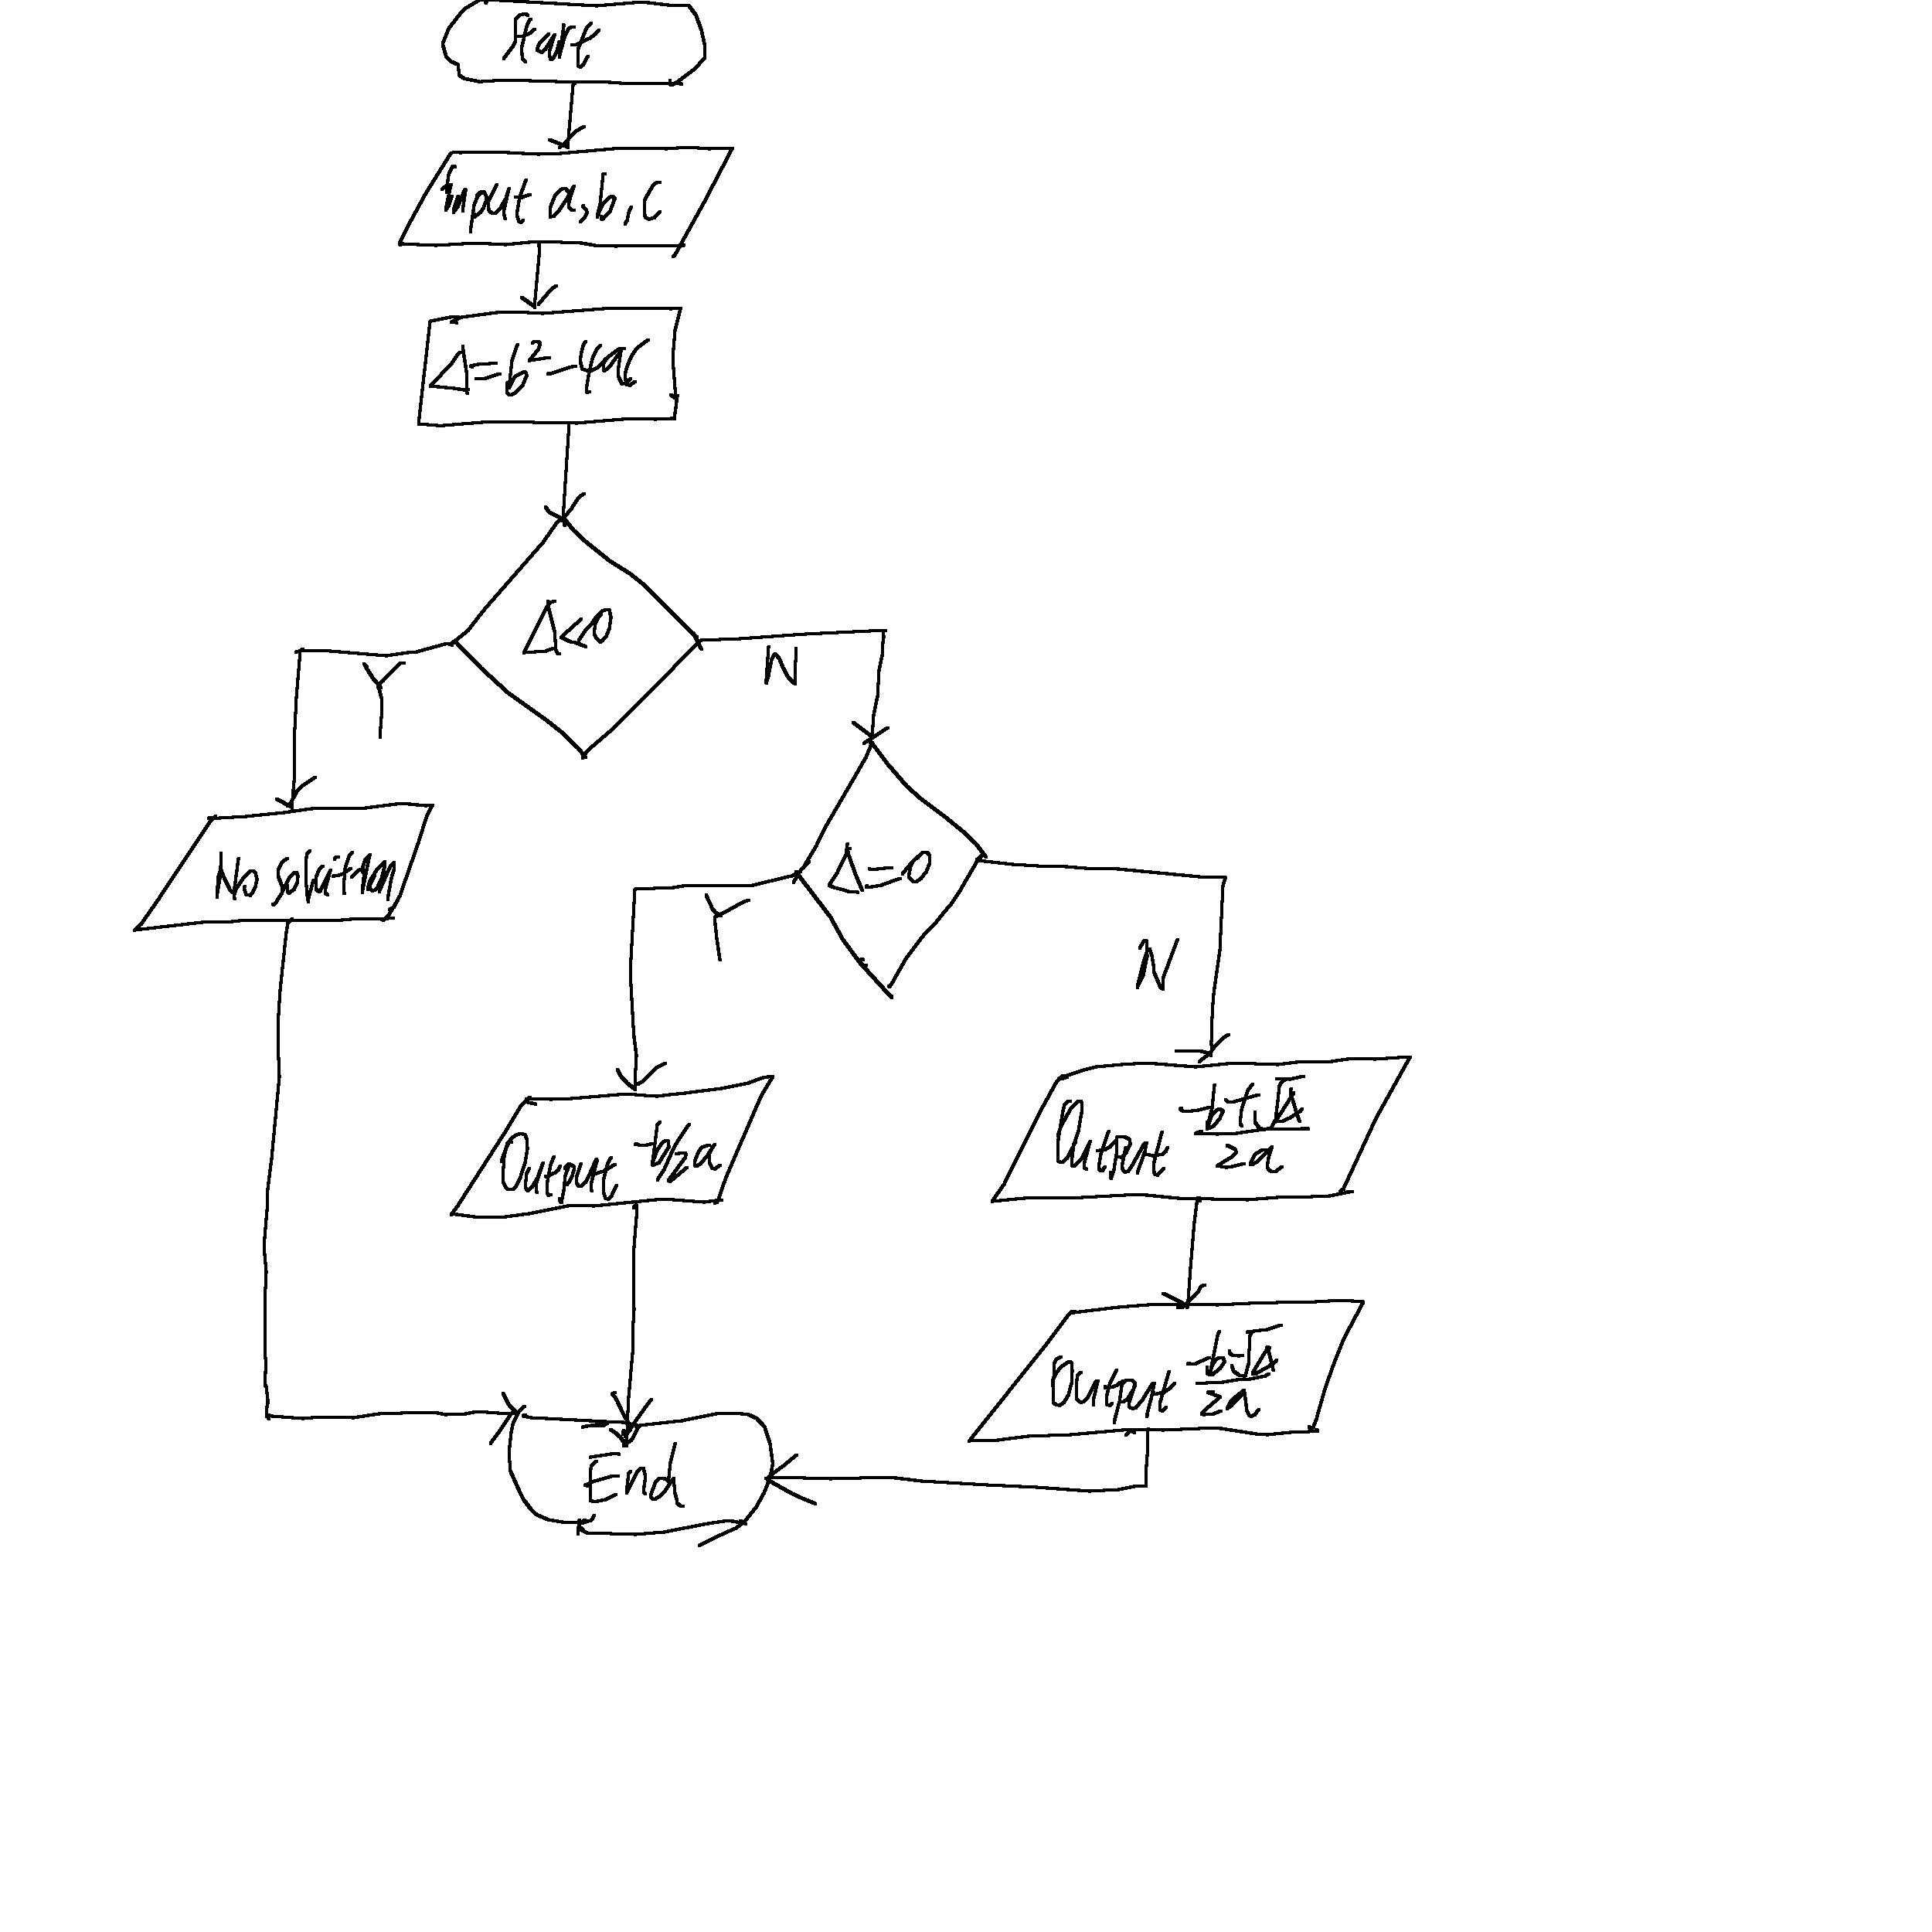 Start
Input a, b, c
Δ=b²-4ac
Δ<0
Y
N
No solution
Δ=0
Y
N
Output -b/2a
Output (-b+√Δ)/2a
Output (-b-√Δ)/2a
End